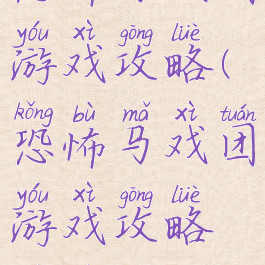 yóu xì gōng lüè
游戏攻略(
kǒng bù mǎ xì tuán
恐怖马戏团
yóu xì gōng lüè
游戏攻略